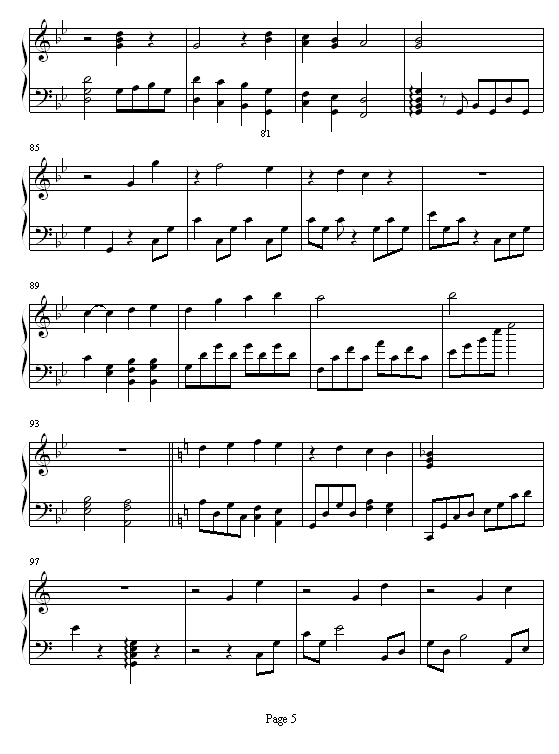 81
85
89
93
97
Page 5